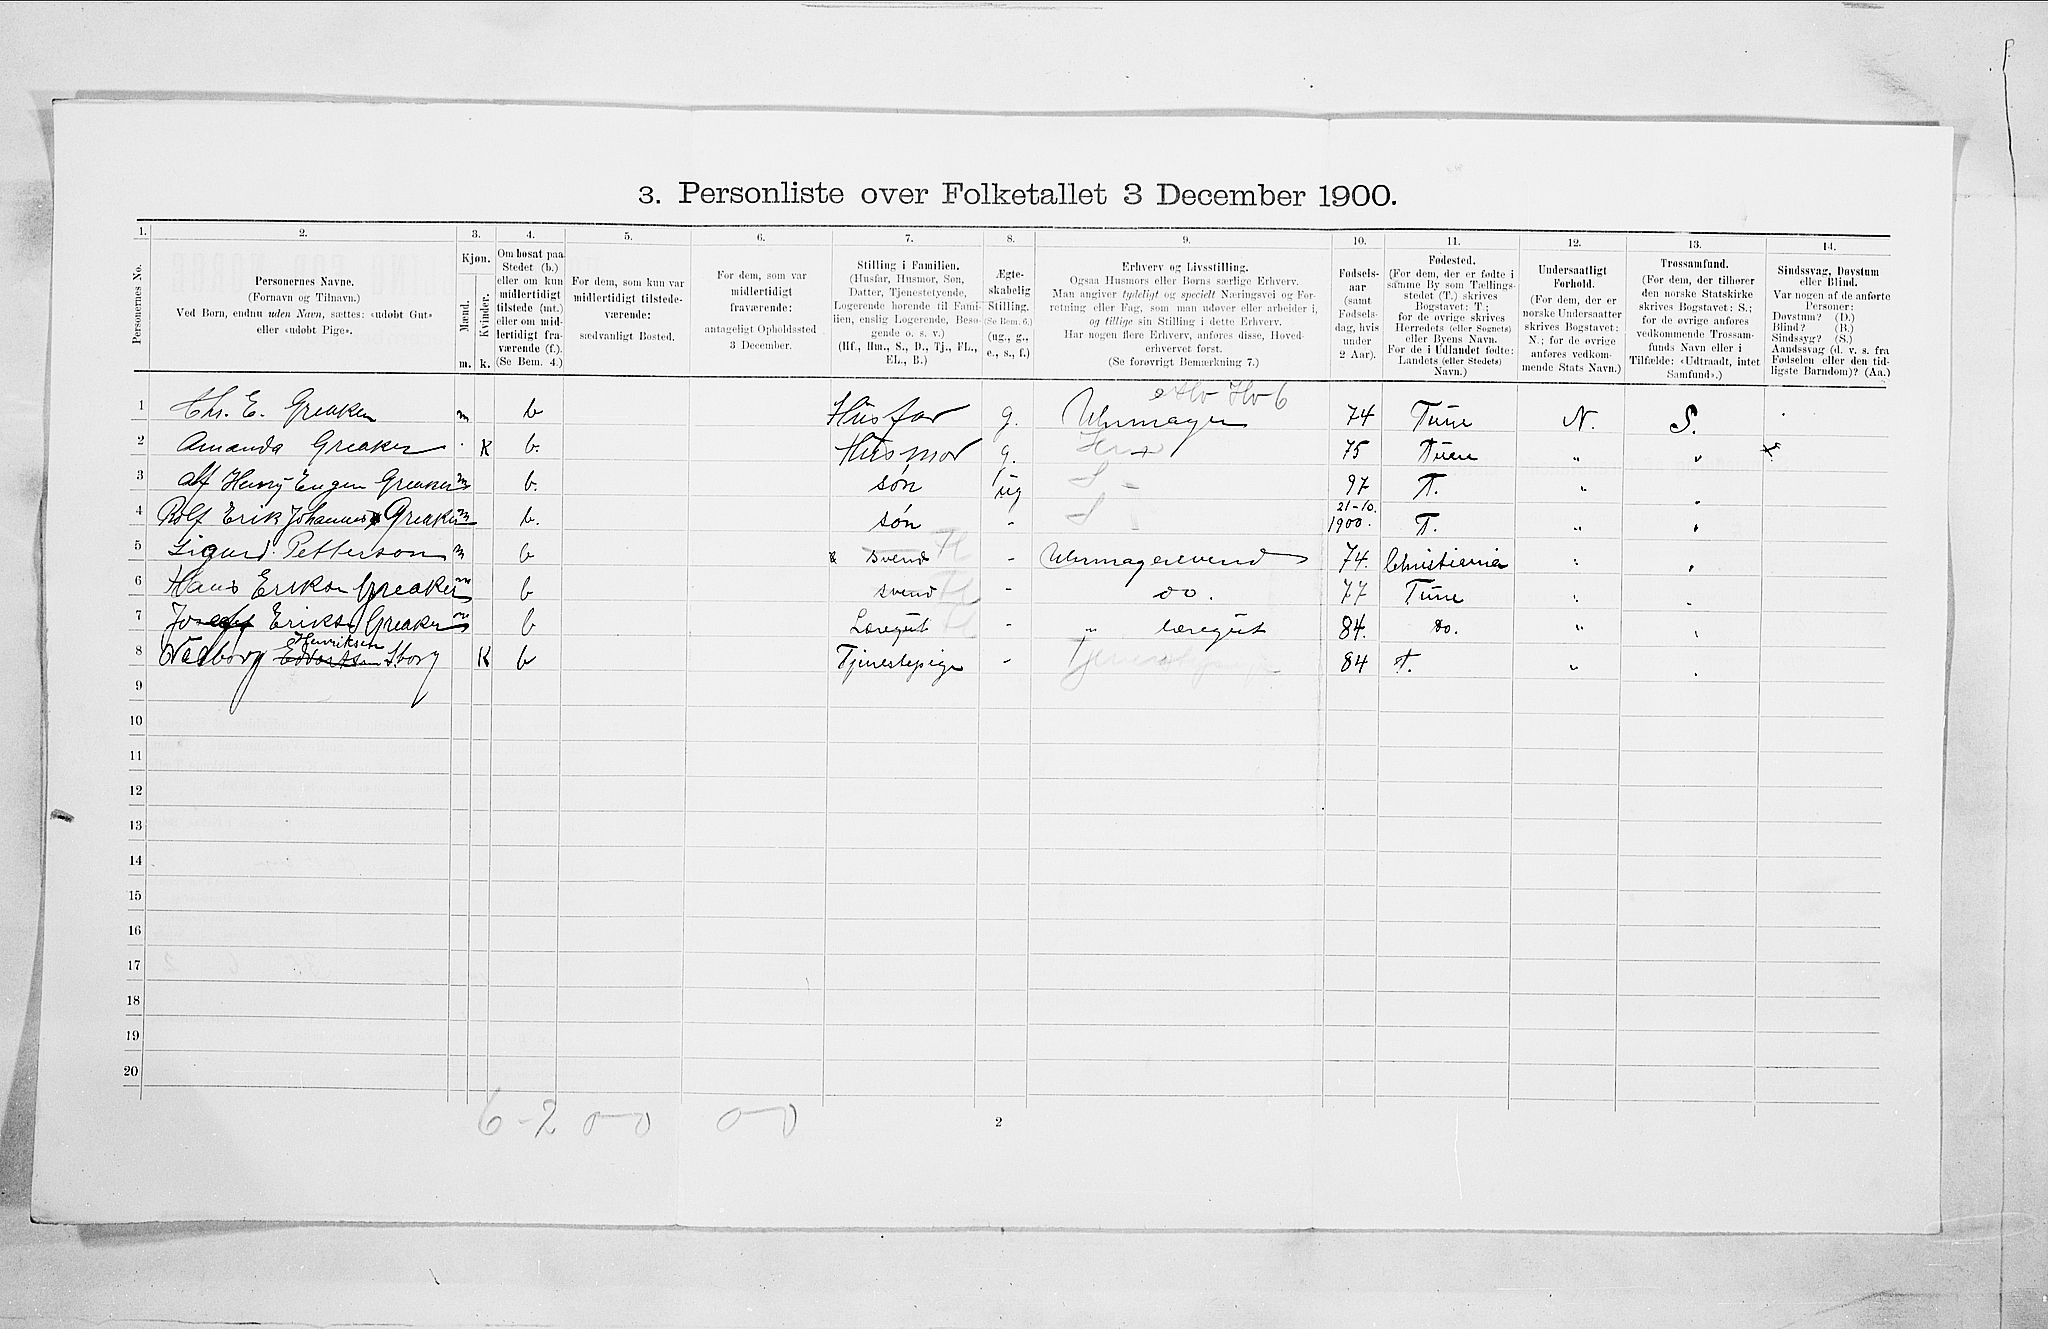 3. Personliste over Folketallet 3 December 1900.
1. 2. 3. 4. 5. 6. 7. 8. 9. 10. 11. 12. 13. 14.
Personernes No.
Personernes Navne.
(Fornavn og Tilnavn.)
Ved Børn, endnu uden Navn, sættes: «udøbt Gut»
eller «udøbt Pige».
Kjøn.
Mænd.
Kvinder.
m. k.
Om bosat paa
Stedet (b.)
eller om kun
midlertidigt
tilstede (mt.)
eller om mid-
lertidigt fra-
værende (f.).
(Se Bem. 4.)
For dem, som kun var
midlertidigt tilstede-
værende:
sædvanligt Bosted.
For dem, som var
midlertidigt
fraværende:
antageligt Opholdssted
3 December.
Stilling i Familien.
(Husfar, Husmor, Søn,
Datter, Tjenestetyende,
Logerende hørende til Fami-
lien, enslig Logerende, Besø-
gende o. s. v.)
(Hf., Hm., S., D., Tj., FL.,
EL., B.)
Ægte-
skabelig
Stilling.
(Se Bem. 6.)
(ug., g.,
e., s., f.)
Erhverv og Livsstilling.
Ogsaa Husmors eller Børns særlige Erhverv.
Man angiver tydeligt og specielt Næringsvei og For-
retning eller Fag, som man udøver eller arbeider i,
og tillige sin Stilling i dette Erhverv.
Har nogen flere Erhverv, anføres disse, Hoved-
erhvervet først.
(Se forøvrigt Bemærkning 7.)
Fødsels-
aar
(samt
Fødsels-
dag, hvis
under
2 Aar).
Fødested.
(For dem, der er fødte i
samme By som Tællings-
stedet (T.) skrives
Bogstavet: T.;
for de øvrige skrives
Herredets (eller Sognets)
eller Byens Navn.
For de i Udlandet fødte:
Landets (eller Stedets)
Navn.)
Undersaatligt
Forhold.
(For dem, der er
norske Undersaatter
skrives Bogstavet:
N.; for de øvrige
anføres vedkom-
mende Stats Navn.)
Trossamfund.
(For dem, der tilhører
den norske Statskirke
skrives Bogstavet: S.;
for de øvrige anføres
vedkommende Trossam-
funds Navn eller i
Tilfælde: «Udtraadt, intet
Samfund».)
Sindssvag, Døvstum
eller Blind.
Var nogen af de anførte
Personer:
Døvstum? (D.)
Blind? (B.)
Sindssyg? (S.)
Aandssvag (d. v. s. fra
Fødselen eller den tid-
ligste Barndom)? (Aa.)
1 Chr. E. Greaker m b Husfar g. Uhrmager 74 Tune N. S.
2 Amanda Greaker K b. Husmor g. 75 Tune „ „
3 Alf Henry Eugen Greaker m b. søn ug 97 T. „ „
4 Rolf Erik Johannes Greaker m b. søn - 21-10. 1900. T. „ „
5 Sigurd Petterson m b svend - Uhrmagersvend 74. Christiania „ „
6 Hans Erikson Greaker m b svend - do. 77 Tune „ „
7 Josef Eriksen Greaker m b Læregut - „ læregut 84. do. „ „
8 Valborg Henriksen Edvartsen Storg K b Tjenestepige - Tjenestepige 84 T. „ „
9
10
11
12
13
14
15
16
17
18
19
20
6-2 0-0 0-0
2